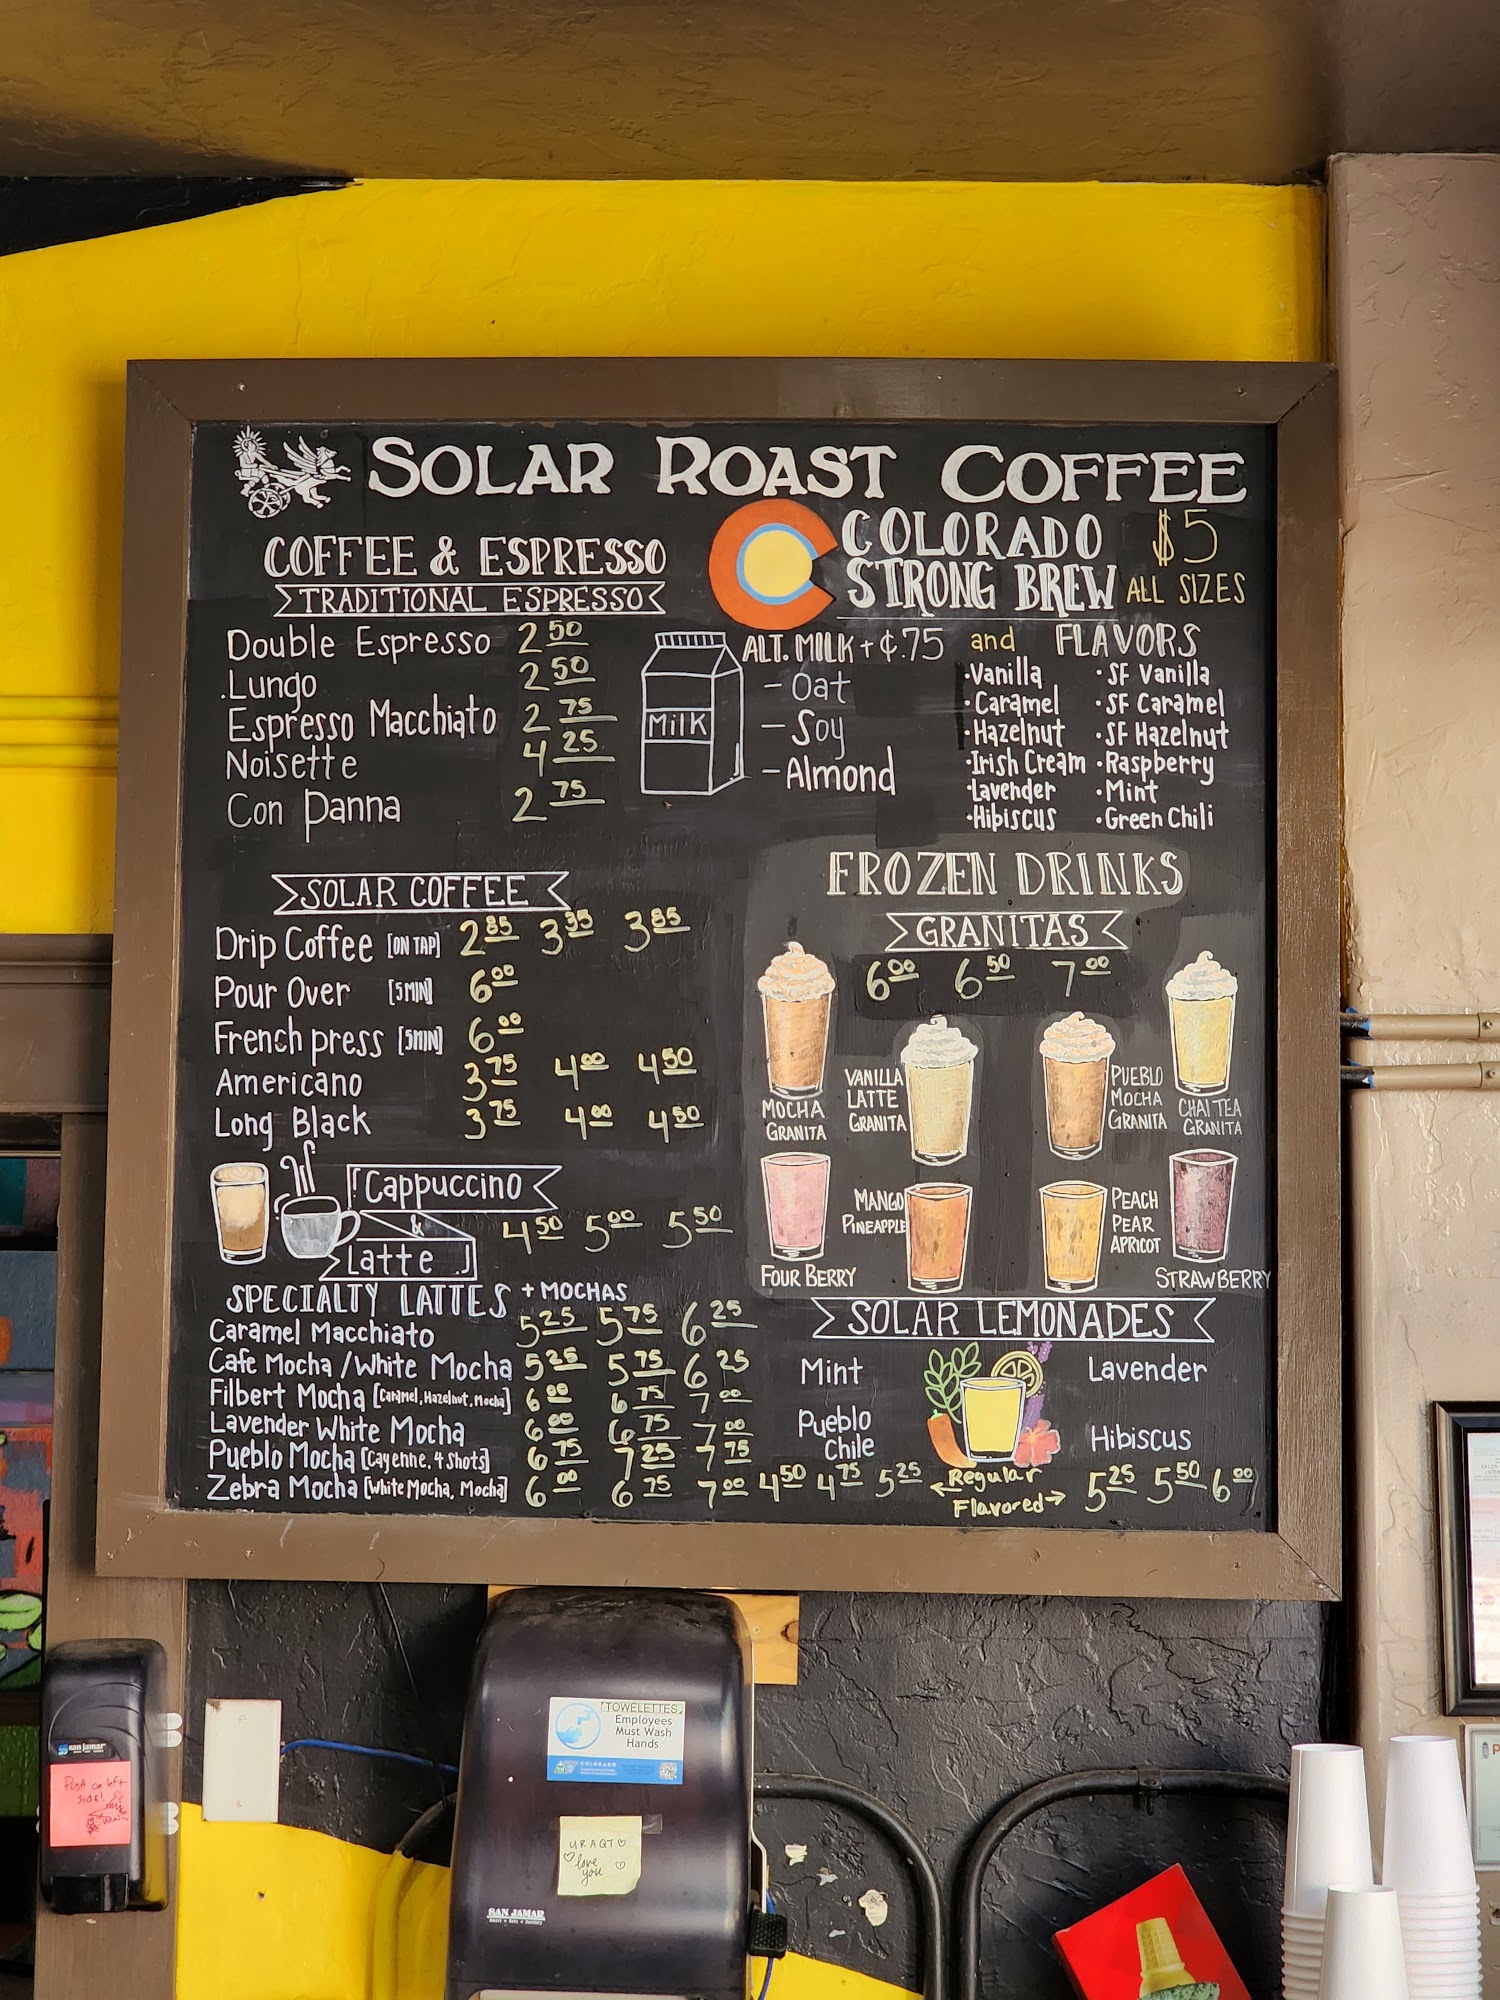 SOLAR ROAST COFFEE
COFFEE & ESPRESSO
TRADITIONAL ESPRESSO
Double Espresso 2 50
.Lungo 2 50
Espresso Macchiato 2 75
Noisette 4 25
Con Panna 2 75
COLORADO
STRONG BREW
$5
ALL SIZES
MilK
ALT. MILK + ¢.75 and FLAVORS
- Oat
- Soy
- Almond
·Vanilla
·Caramel
·Hazelnut
·Irish Cream
·Lavender
·Hibiscus
·SF Vanilla
·SF Caramel
·SF Hazelnut
·Raspberry
·Mint
·Green Chili
SOLAR COFFEE
Drip Coffee [ON TAP] 2 85 3 35 3 85
Pour Over [5 MIN] 6 00
French press [5MIN] 6 00
Americano 3 75 4 00 4 50
Long Black 3 75 4 00 4 50
Cappuccino
&
Latte
4 50 5 00 5 50
SPECIALTY LATTES + MOCHAS
Caramel Macchiato 5 25 5 75 6 25
Cafe Mocha / White Mocha 5 25 5 75 6 25
Filbert Mocha [Caramel, Hazelnut, Mocha] 6 00 6 75 7 00
Lavender White Mocha 6 00 6 75 7 00
Pueblo Mocha [Cayenne, 4 Shots] 6 75 7 25 7 75
Zebra Mocha [White Mocha, Mocha] 6 00 6 75 7 00
FROZEN DRINKS
GRANITAS
6 00 6 50 7 00
MOCHA
GRANITA
VANILLA
LATTE
GRANITA
PUEBLO
MOCHA
GRANITA
CHAI TEA
GRANITA
FOUR BERRY
MANGO
PINEAPPLE
PEACH
PEAR
APRICOT
STRAWBERRY
SOLAR LEMONADES
Mint
Lavender
Pueblo
Chile
Hibiscus
4 50 4 75 5 25 ← Regular
Flavored → 5 25 5 50 6 00
TOWELETTES
Employees
Must Wash
Hands
san jamar
Push on left
side!
U R A QT
love
you
SAN JAMAR